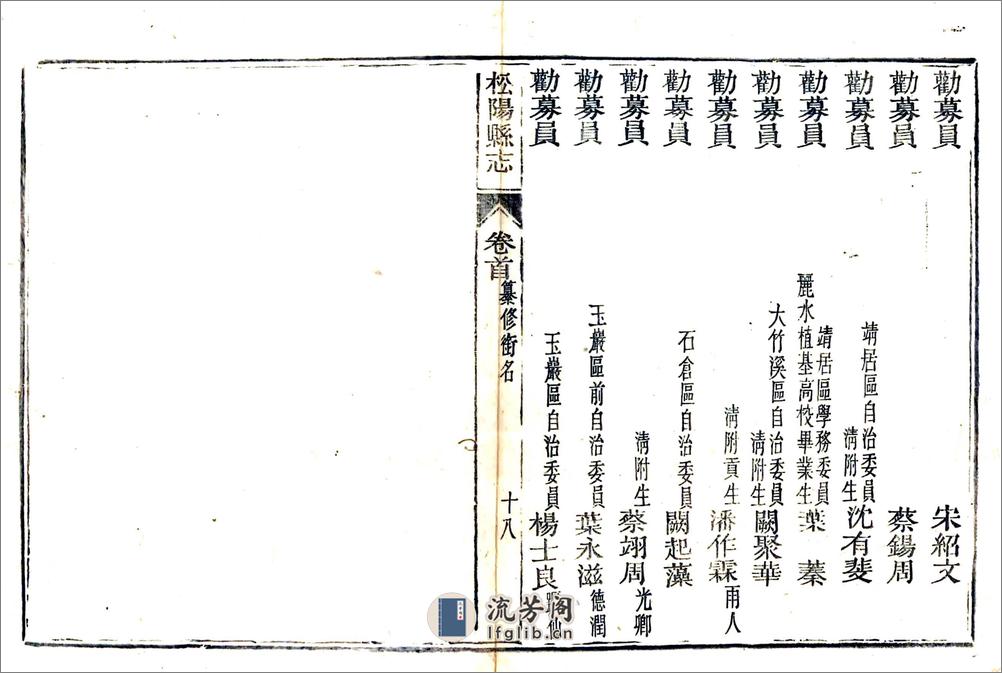 勸募員 宋紹文
勸募員 蔡鍚周
勸募員 靖居區自治委員 清附生 沈有斐
勸募員 靖居區學務委員 麗水植基高校畢業生 葉蓁
勸募員 大竹溪區自治委員 清附生 闕聚華
勸募員 清附貢生 潘作霖 雨人
勸募員 石倉區自治委員 闕起藻
勸募員 清附生 蔡翊周 光卿
勸募員 玉巖區前自治委員 葉永滋 德潤
勸募員 玉巖區自治委員 楊士良 仙
松陽縣志 卷首 纂修銜名 十八
流芳阁
lfglib.cn